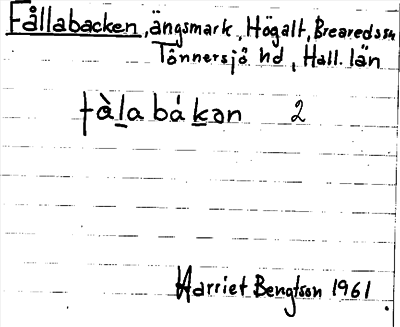 Fållabacken, ängsmark, Högalt, Breareds sn
Tönnersjö hd, Hall. län
fàla bákən 2
Harriet Bengtson 1961.